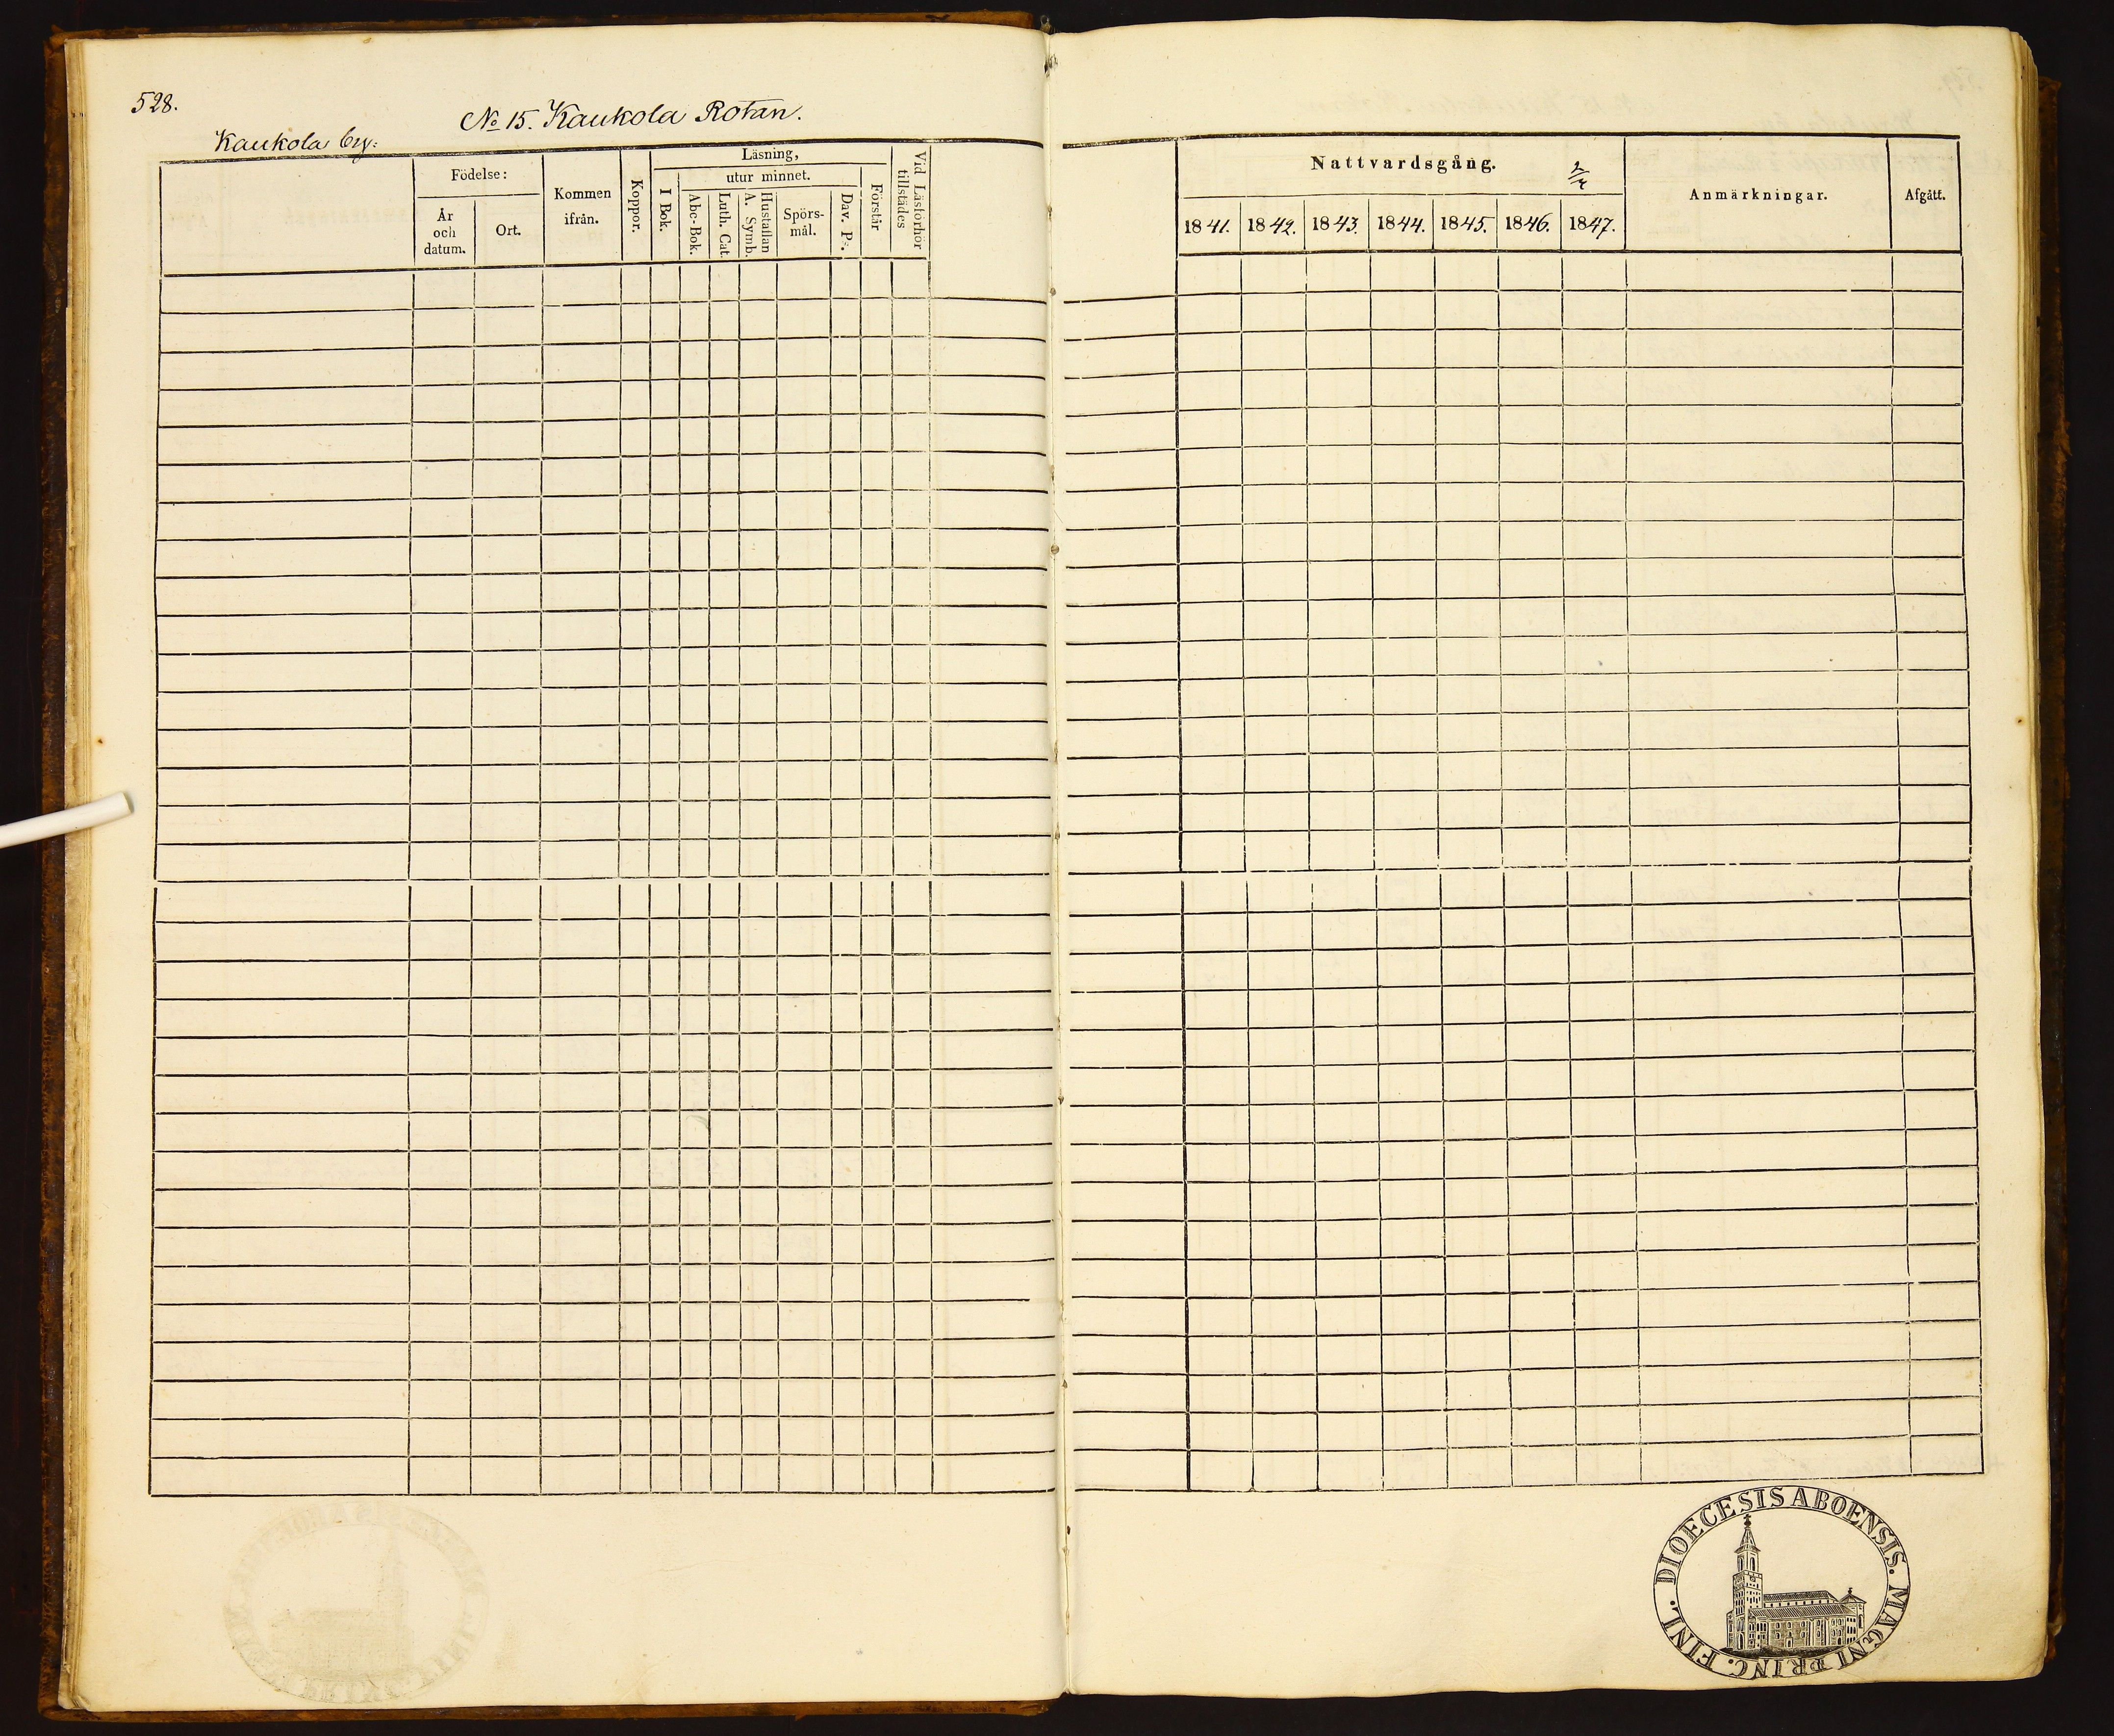 528.
No 15. Kaukola Rotan.
Kaukola by:
Födelse:
År och datum.
Ort.
Kommen ifrån.
Koppor.
Läsning,
I Bok.
utur minnet.
Abc-Bok.
Luth. Cat.
Hustaflan A. Symb.
Spörs-mål.
Dav. Ps.
Förstår
Vid Läsförhör tillstädes
Nattvardsgång.
1841. 1842. 1843. 1844. 1845. 1846. 1847.
Anmärkningar.
Afgått.
DIOECESIS ABOENSIS. MAGNI PRINC. FINL.